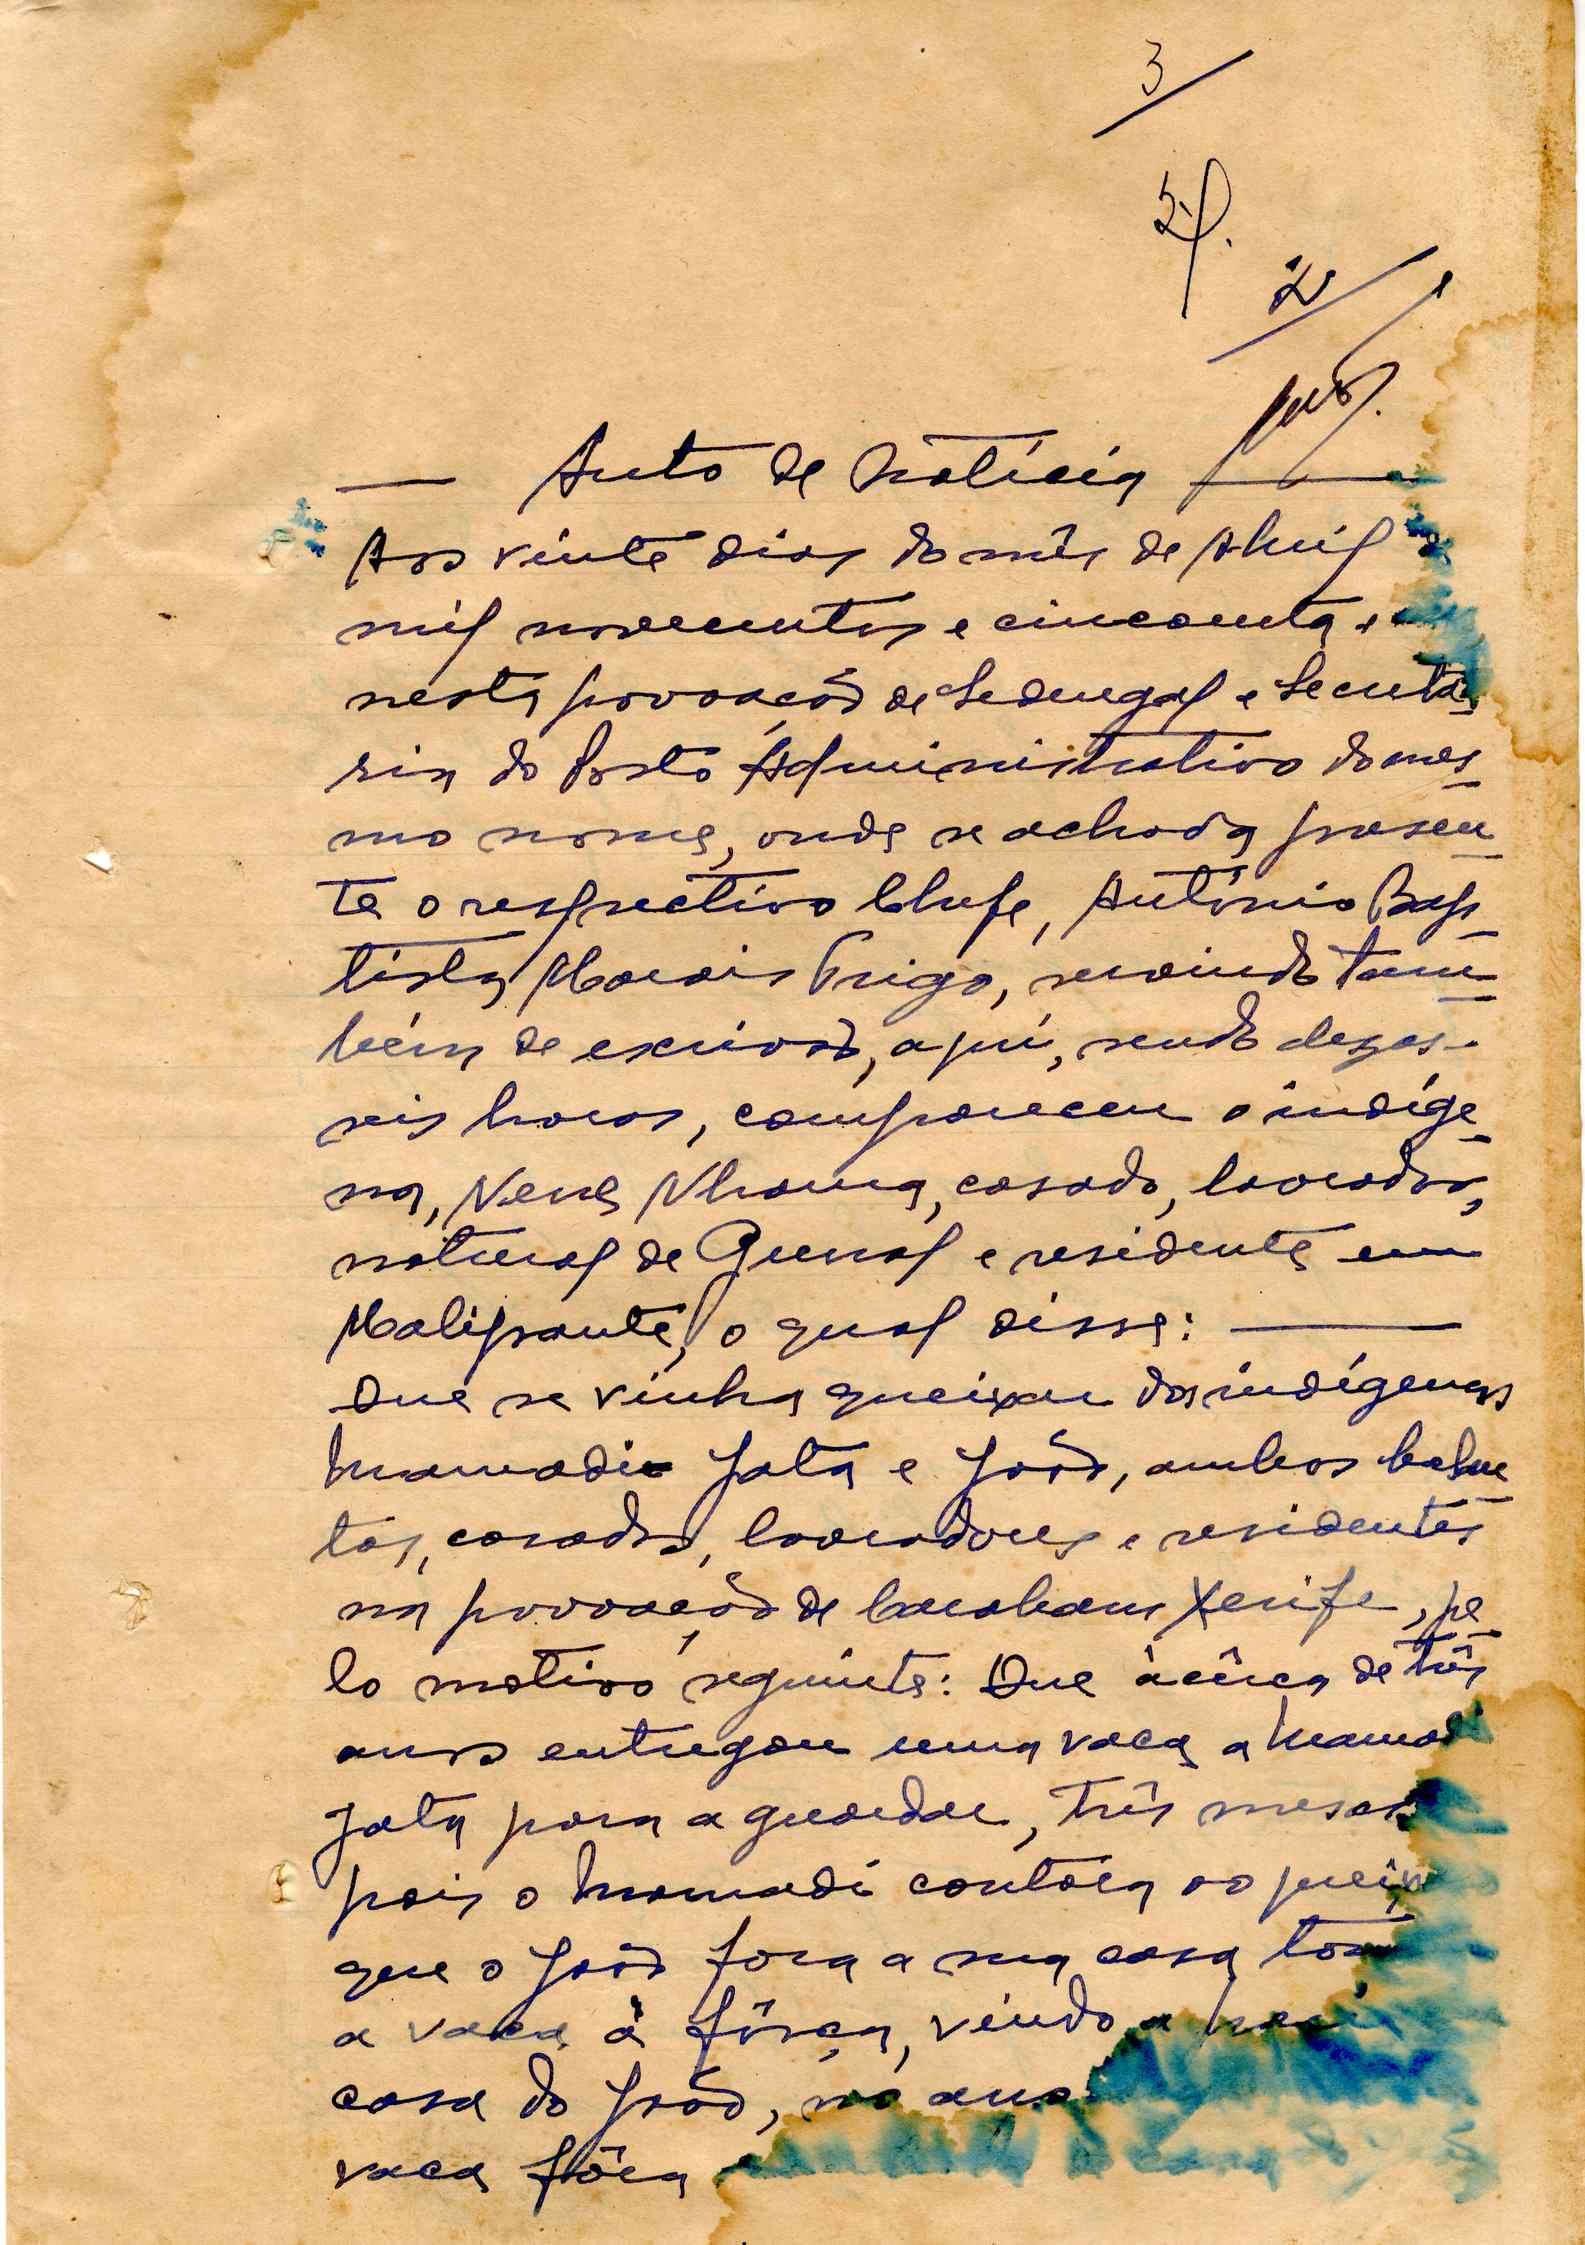 3
2
Auto de Notícia
Aos vinte dias do mês de Abril
mil novecentos e cincoenta e
nesta povoação de Sedengal e Secretá
ria do Posto Administrativo do mes
mo nome, onde se achava presen
te o respectivo Chefe, António Bap
tista Morais Trigo, servindo tam
bém de escrivão, aqui, sendo dezas-
seis horas, compareceu o indíge
na, Nene Nhama, casado, lavrador,
natural de e residente em
Malipante, o qual disse:
Que se vinha queixar dos indígenas
Mamadi Jata e João, ambos balan
tas, casados, lavradores e residentes
na povoação de Carabane Xerife, pe
lo motivo seguinte: Que àcêrca de três
anos entregou uma vaca a Mamadi
Jata para a guardar, três meses
pois o Mamadi contára ao queix
que o João fora a sua casa tom
a vaca à fôrça, vindo a
casa do João, no ano
vaca fôra